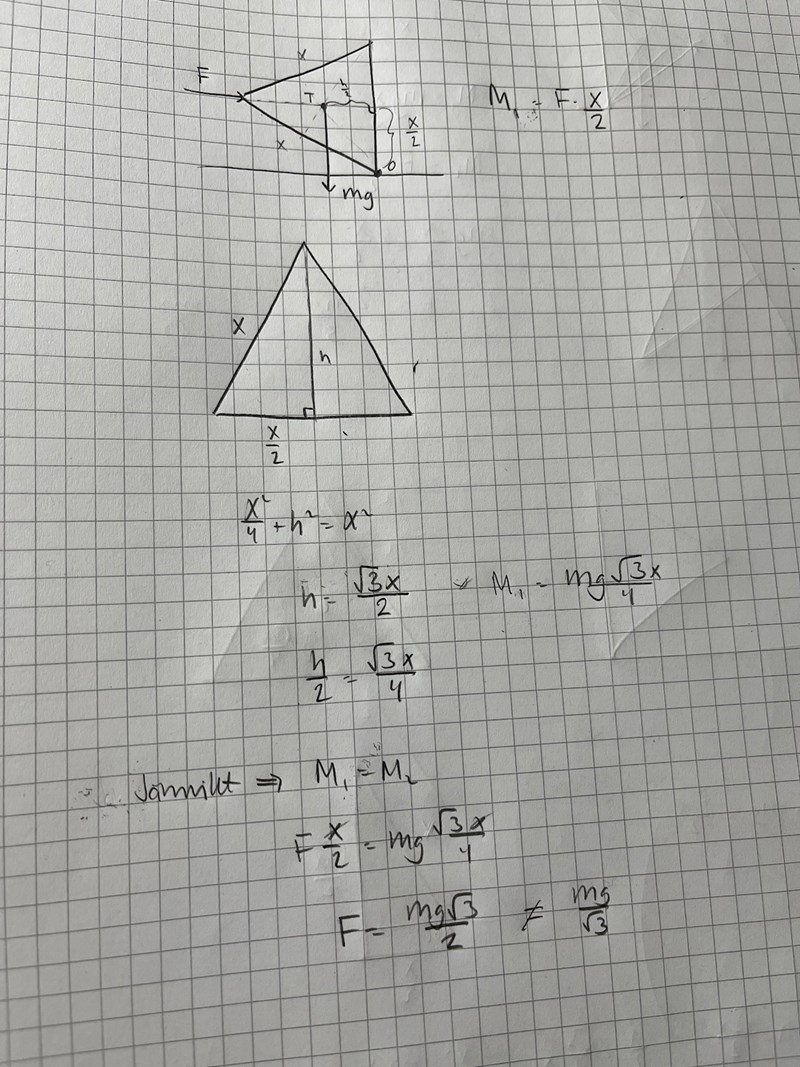 x
F
T
h/2
x/2
x
O
mg
M₁ = F · x/2
x
h
x/2
x²/4 + h² = x²
h = √3x/2
M₁ = mg √3x/4
h/2 = √3x/4
Jämvikt ⇒ M₁ = M₂
F x/2 = mg √3x/4
F = mg√3/2 ≠ mg/√3